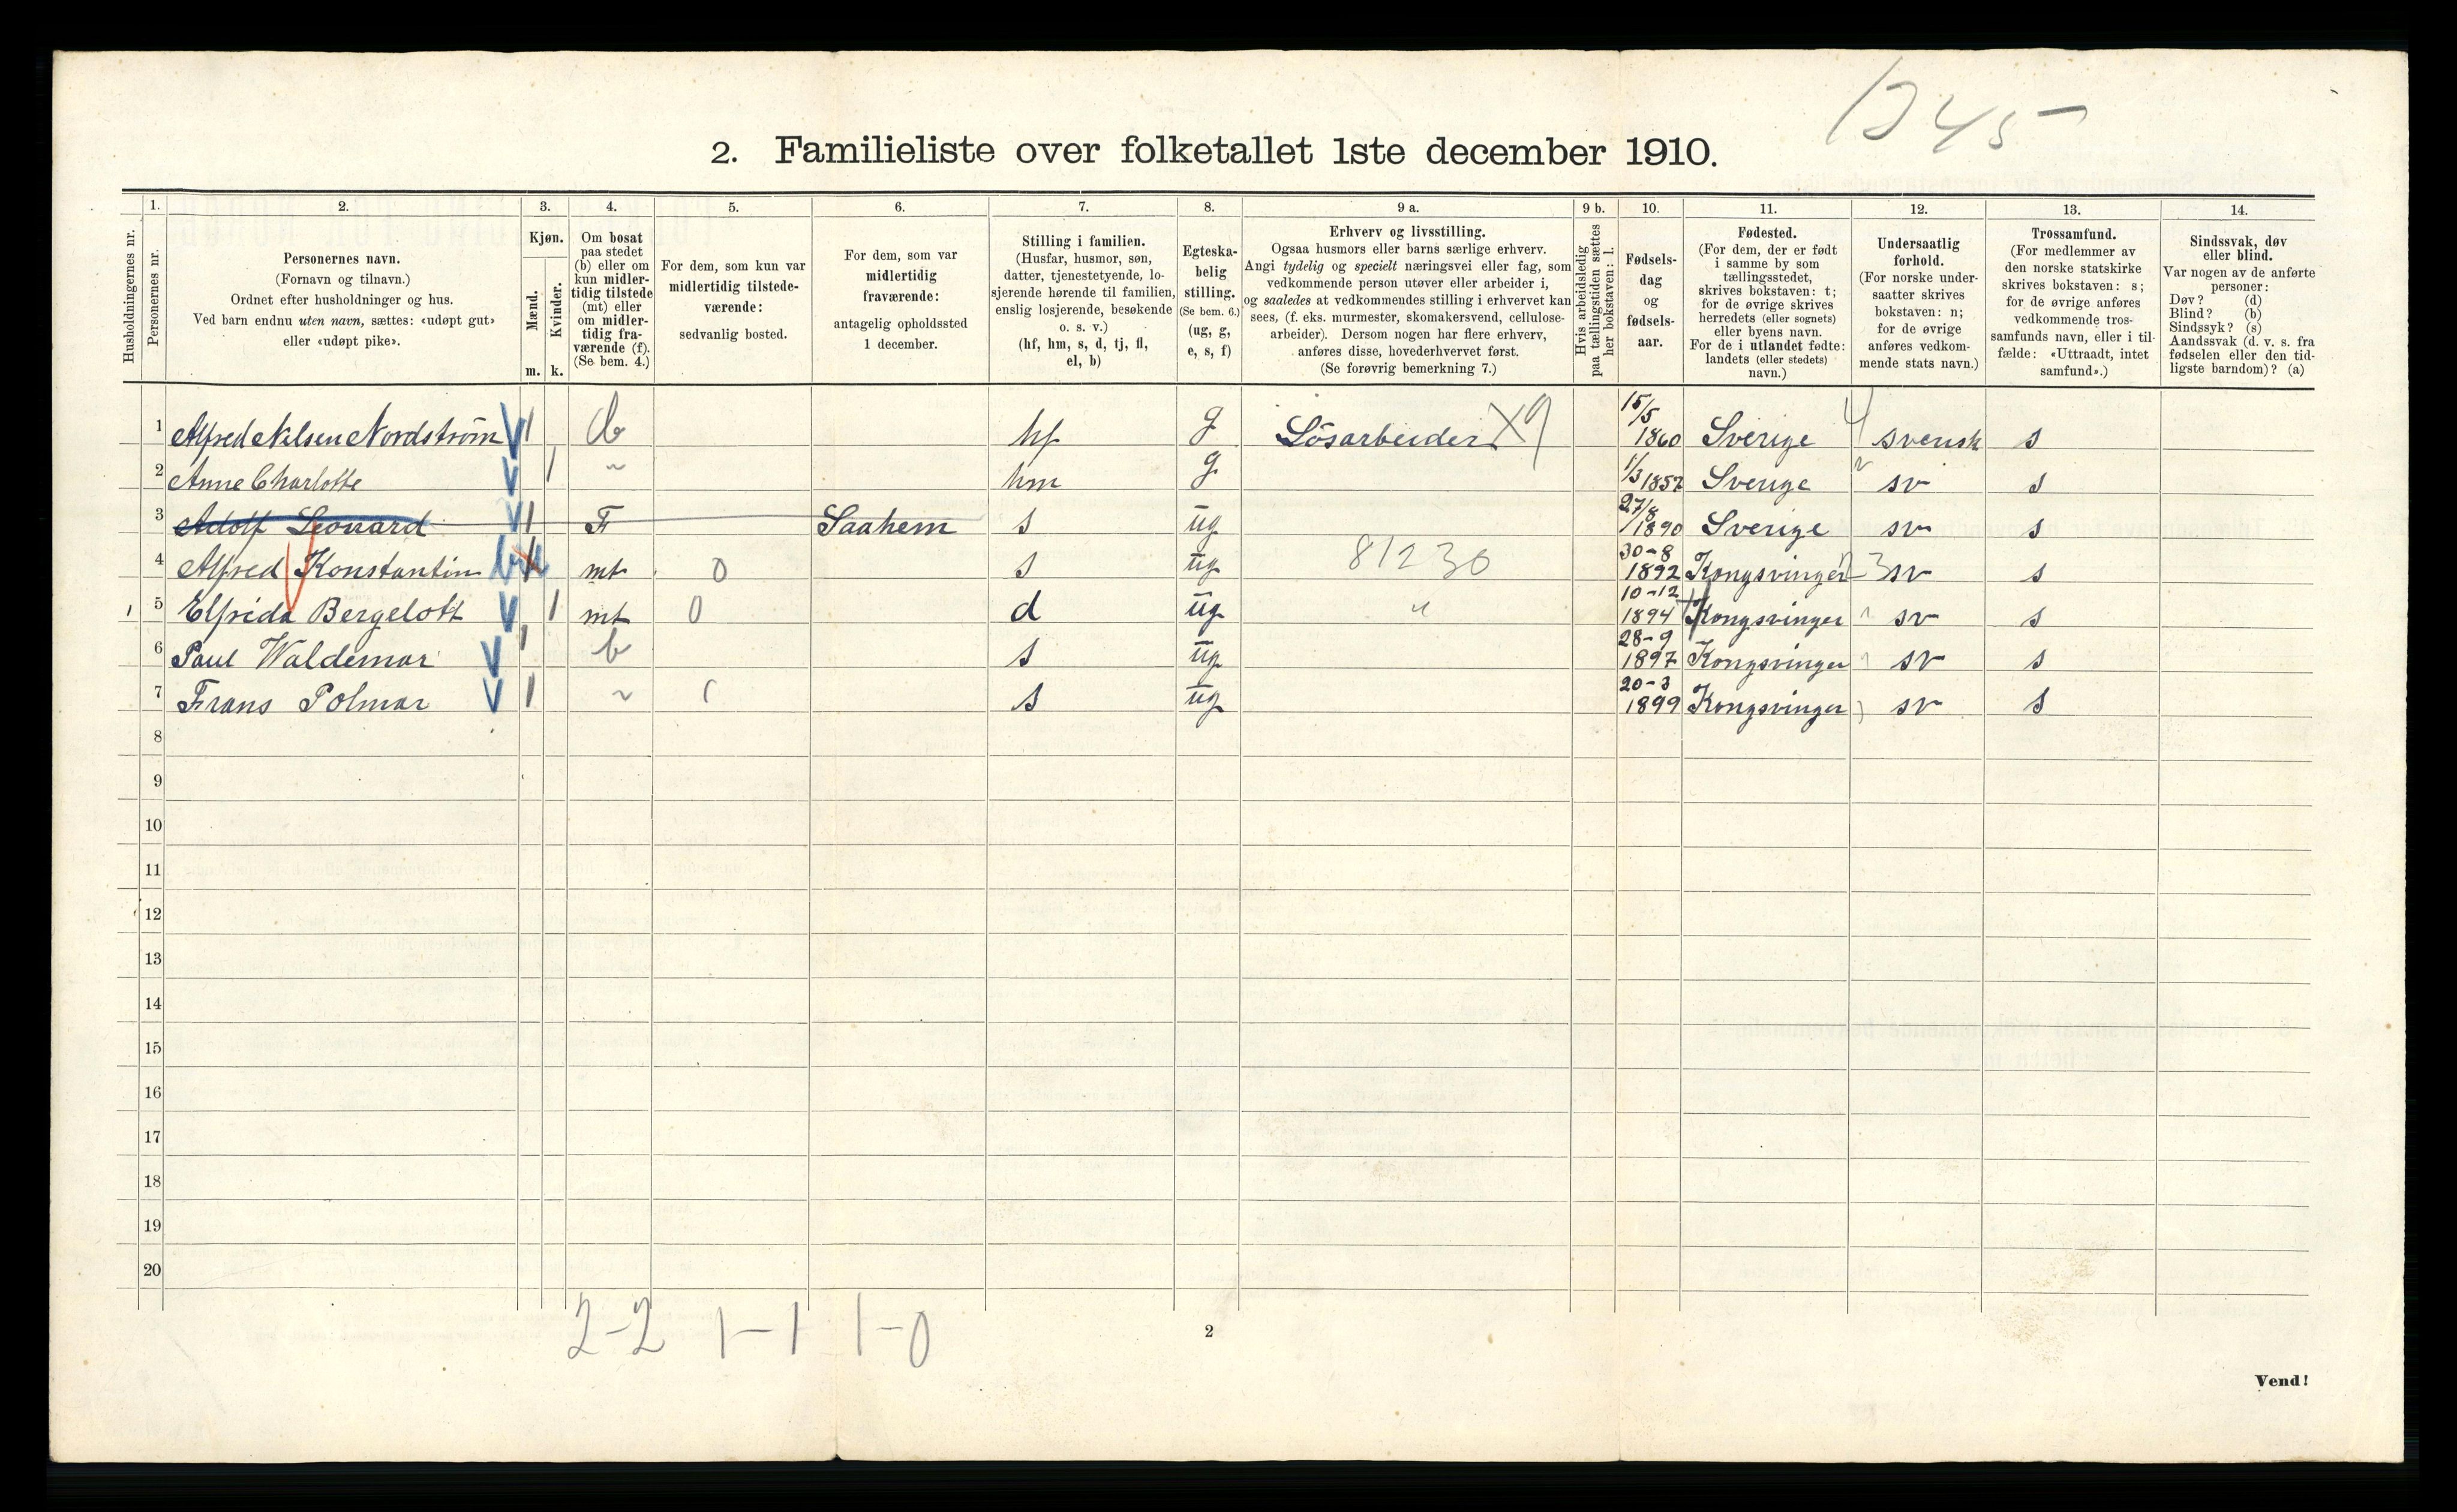 1345
2. Familieliste over folketallet 1ste december 1910.
Husholdningernes nr.
1. Personernes nr.
2.
Personernes navn.
(Fornavn og tilnavn.)
Ordnet efter husholdninger og hus.
Ved barn endnu uten navn, sættes: «udøpt gut»
eller «udøpt pike».
3.
Kjøn.
Mænd. Kvinder.
m. k.
4.
Om bosat
paa stedet
(b) eller om
kun midler-
tidig tilstede
(mt) eller
om midler-
tidig fra-
værende (f).
(Se bem. 4.)
5.
For dem, som kun var
midlertidig tilstede-
værende:
sedvanlig bosted.
6.
For dem, som var
midlertidig
fraværende:
antagelig opholdssted
1 december.
7.
Stilling i familien.
(Husfar, husmor, søn,
datter, tjenestetyende, lo-
sjerende hørende til familien,
enslig losjerende, besøkende
o. s. v.)
(hf, hm, s, d, tj, fl,
el, b)
8.
Egteska-
belig
stilling.
(Se bem. 6.)
(ug, g,
e, s, f)
9 a.
Erhverv og livsstilling.
Ogsaa husmors eller barns særlige erhverv.
Angi tydelig og specielt næringsvei eller fag, som
vedkommende person utøver eller arbeider i,
og saaledes at vedkommendes stilling i erhvervet kan
sees, (f. eks. murmester, skomakersvend, cellulose-
arbeider). Dersom nogen har flere erhverv,
anføres disse, hovederhvervet først.
(Se forøvrig bemerkning 7.)
9 b.
Hvis arbeidsledig
paa tællingstiden sættes
her bokstaven: l.
10.
Fødsels-
dag
og
fødsels-
aar.
11.
Fødested.
(For dem, der er født
i samme by som
tællingsstedet,
skrives bokstaven: t;
for de øvrige skrives
herredets (eller sognets)
eller byens navn.
For de i utlandet fødte:
landets (eller stedets)
navn.)
12.
Undersaatlig
forhold.
(For norske under-
saatter skrives
bokstaven: n;
for de øvrige
anføres vedkom-
mende stats navn.)
13.
Trossamfund.
(For medlemmer av
den norske statskirke
skrives bokstaven: s;
for de øvrige anføres
vedkommende tros-
samfunds navn, eller i til-
fælde: «Uttraadt, intet
samfund».)
14.
Sindssvak, døv
eller blind.
Var nogen av de anførte
personer:
Døv? (d)
Blind? (b)
Sindssyk? (s)
Aandssvak (d. v. s. fra
fødselen eller den tid-
ligste barndom)? (a)
1 Alfred Nilsen Nordstrøm V 1 b hf g Lösarbeider X9 15/5 1860 Sverige 4 svensk s
2 Anne Charlotte V 1 ~ hm g 1/3 1857 Sverige " sv s
3 Adolf Leonard V 1 F Saahem s ug 27/8 1890 Sverige sv s
4 Alfred Konstantin mt 0 s ug 81230 30-8 1892 Kongsvinger 3 sv s
1 5 Elfrida Bergelott V 1 mt 0 d ug " 10-12 1894 Kongsvinger sv s
6 Paul Waldemar V 1 b s ug 28-9 1897 Kongsvinger sv s
7 Frans Polmar V 1 ~ s ug 20-3 1899 Kongsvinger sv s
8
9
10
11
12
13
14
15
16
17
18
19
20
2-2 1-1 1-0
2
Vend!